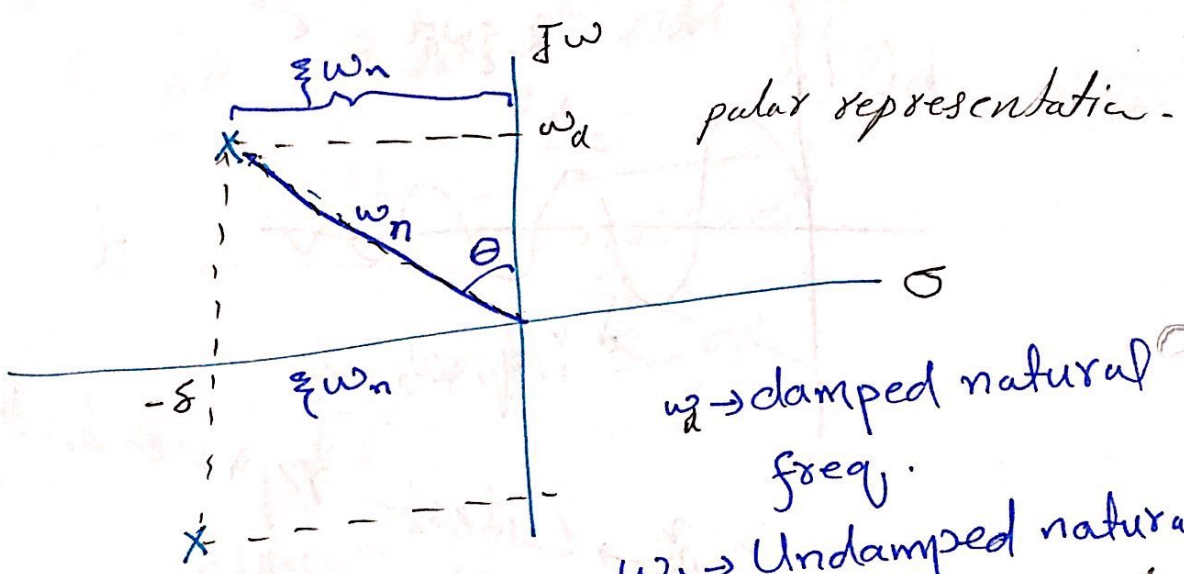 Jω
ξωn
ωd
polar representation.
ωn
θ
σ
-δ
ξωn
ωd → damped natural
freq.
ωn → Undamped natura